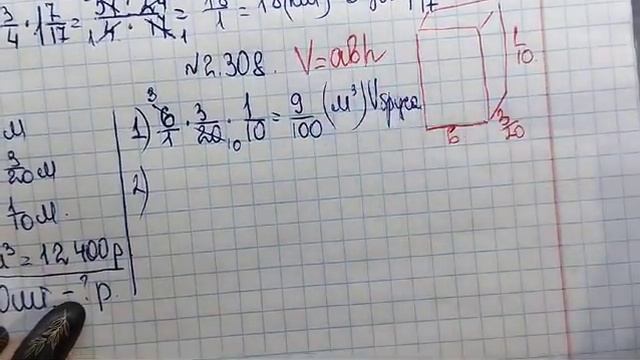 3/4 · 1 7/17 =
№2.308. V=abh
м
3/20 м
1/10 м.
м³ = 12 400р
0шт - ? р.
1) 6/1 · 3/20 · 1/10 = 9/100 (м³) Vбруса
2)
1/10
3/20
6